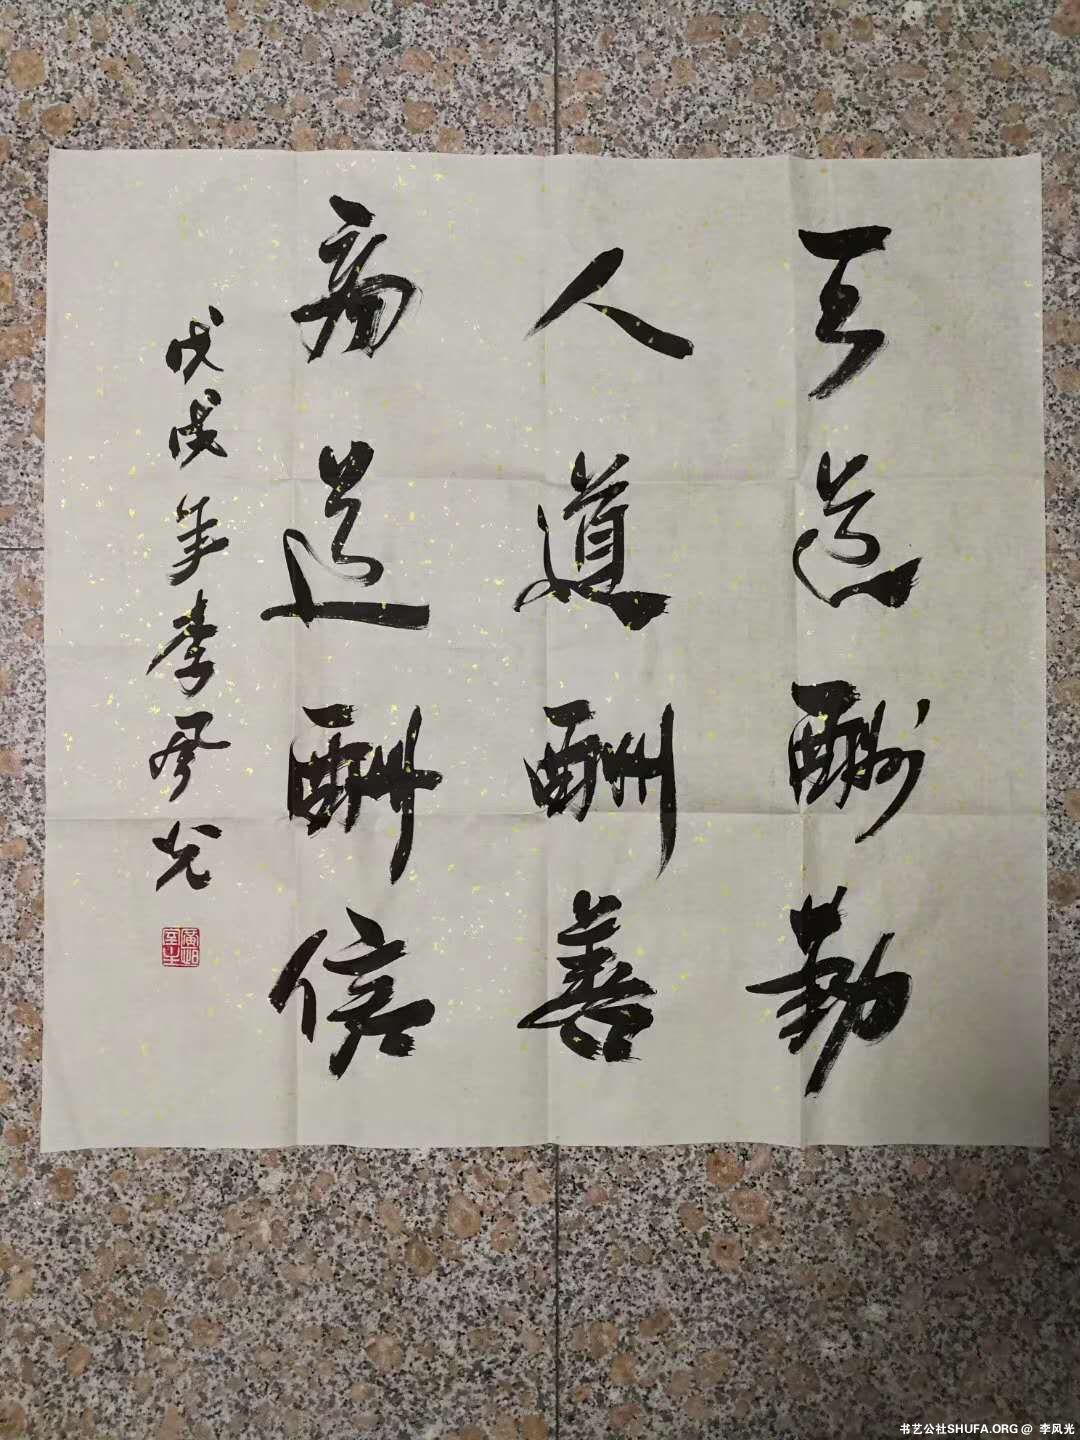 天道酬勤
人道酬善
商道酬信
戊戌年李风光
书艺公社SHUFA.ORG @ 李风光